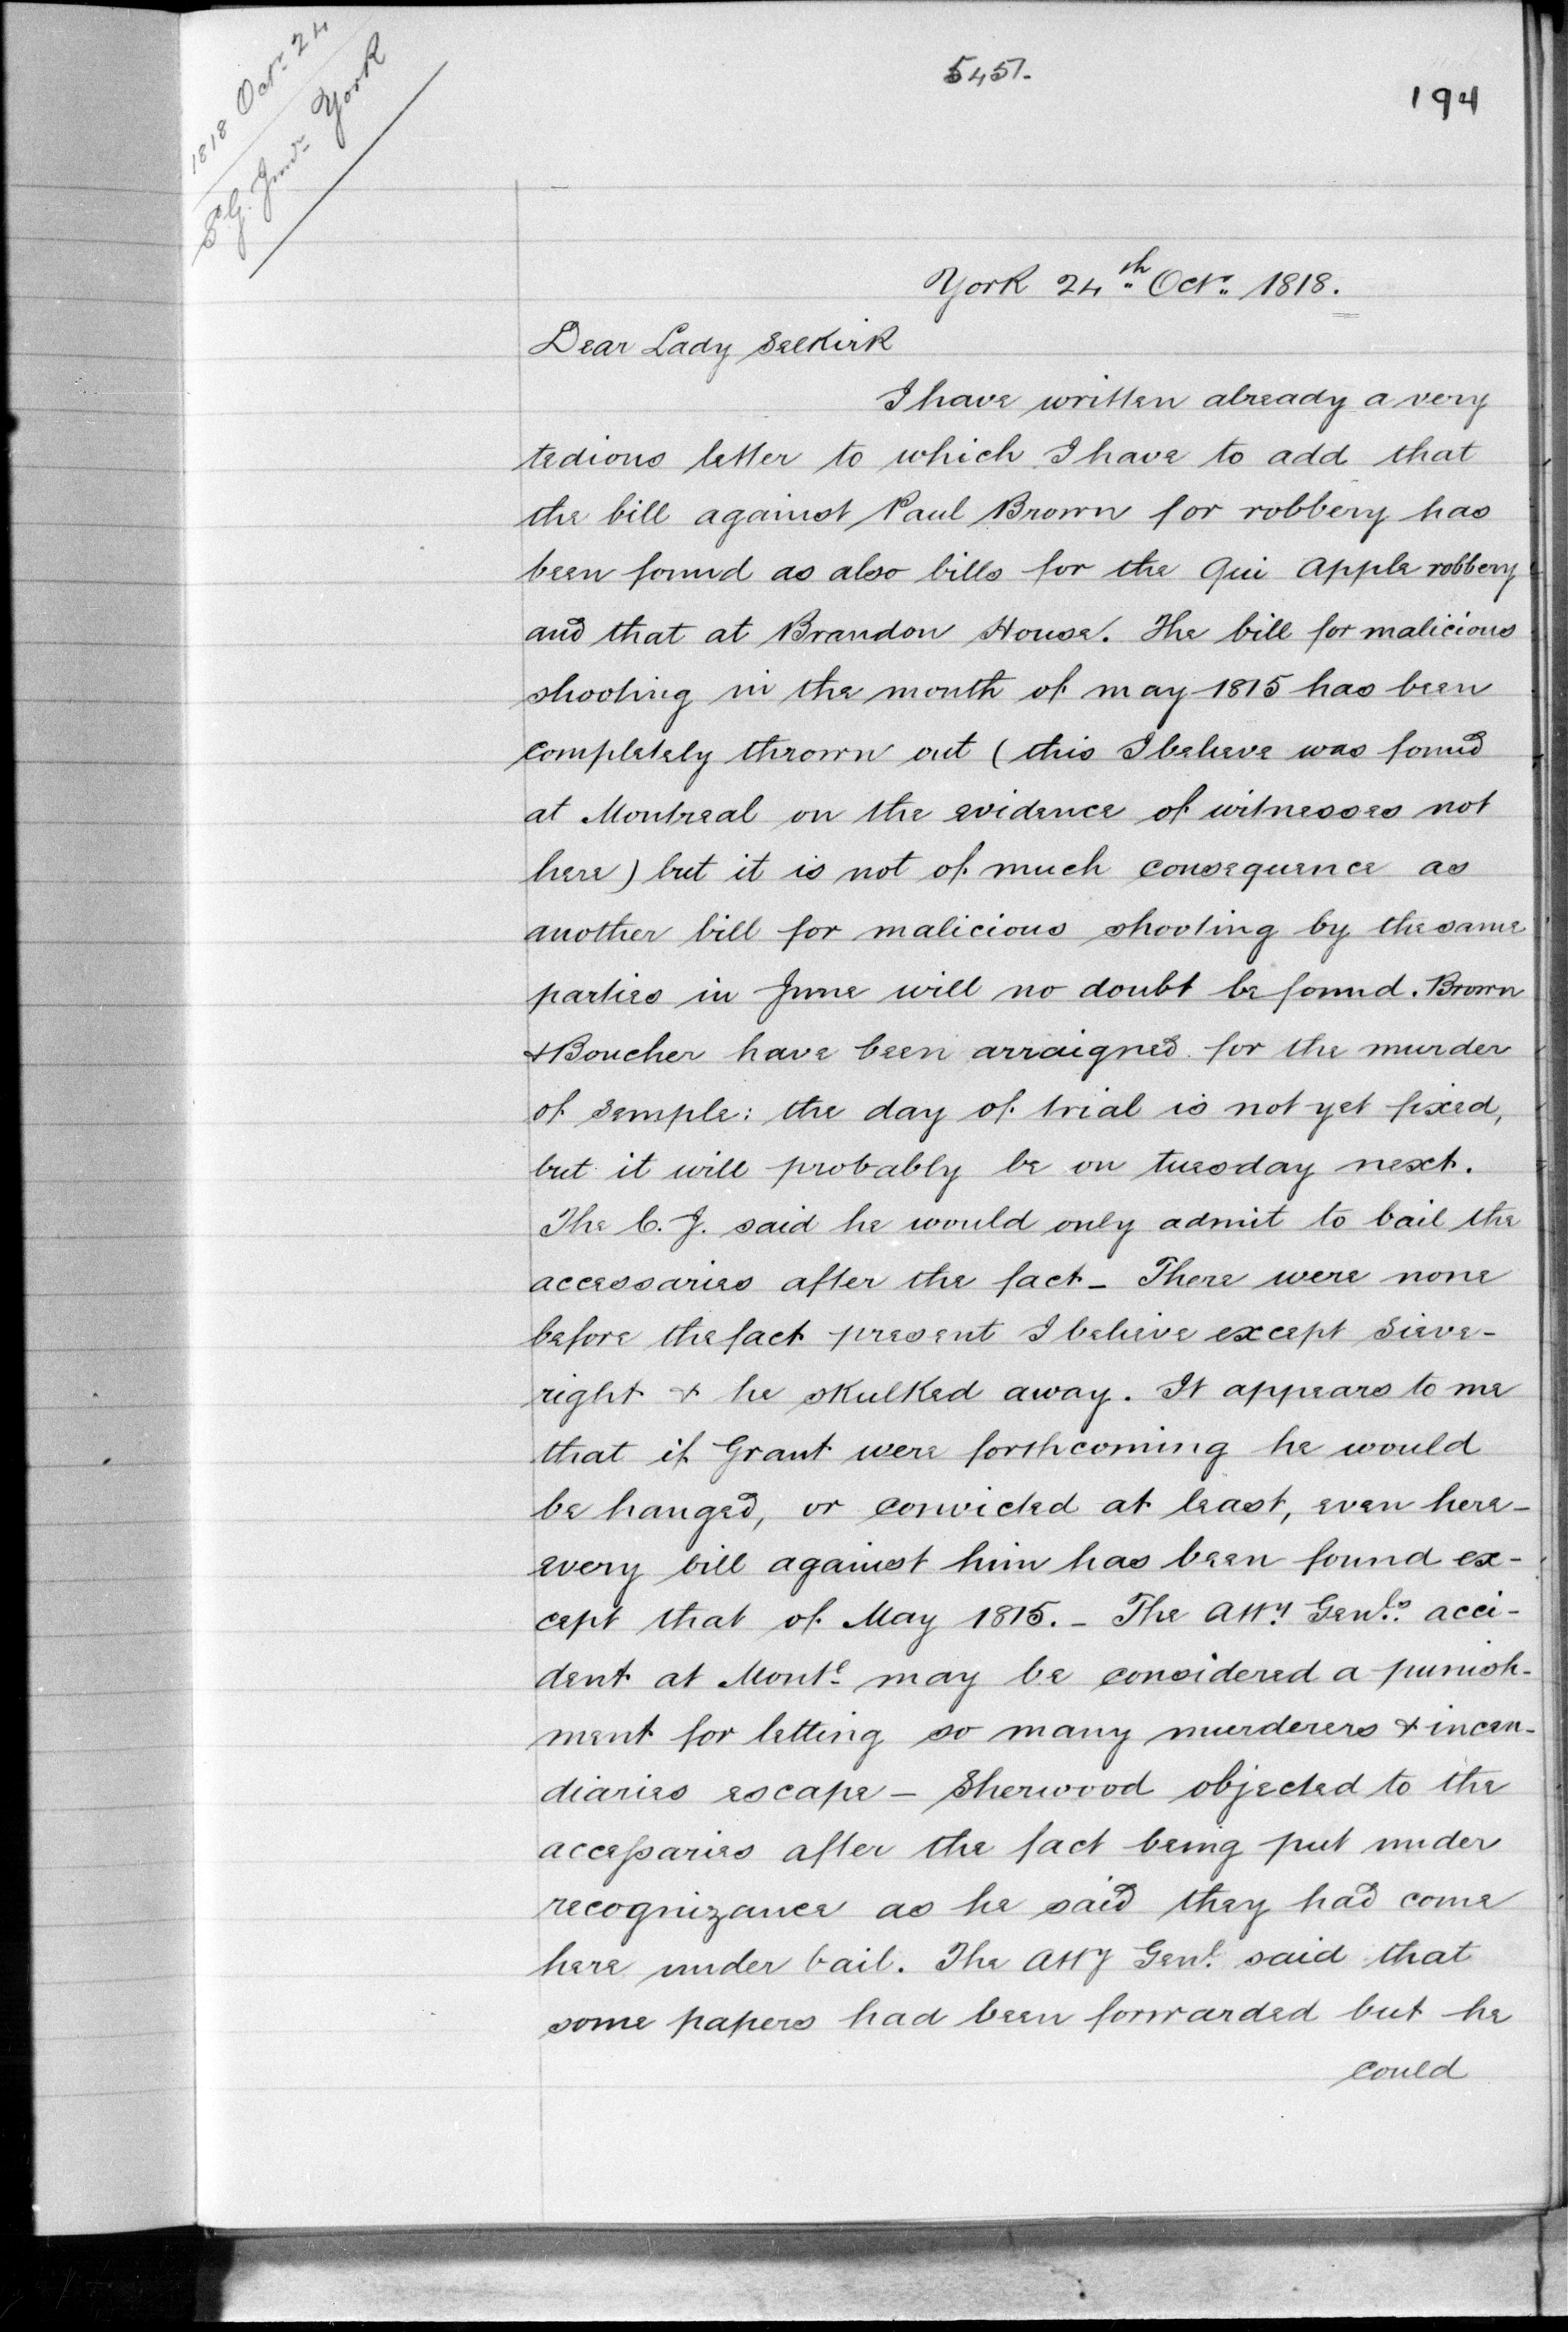 1818 Octr 24
York
5451.
194
York 24th Octr. 1818.
Dear Lady Selkirk
I have written already a very
tedious letter to which I have to add that
the bill against Paul Brown for robbery has
been found as also bills for the Qui Apple robbery
and that at Brandon House. The bill for malicious
shooting in the month of may 1815 has been
completely thrown out (this I believe was found
at Montreal on the evidence of witnesses not
here) but it is not of much consequence as
another bill for malicious shooting by the same
parties in June will no doubt be found. Brown
& Boucher have been arraigned for the murder
of Semple: the day of trial is not yet fixed,
but it will probably be on tuesday next.
The C. J. said he would only admit to bail the
accessaries after the fact - There were none
before the fact present I believe except Sieve-
right & he skulked away. It appears to me
that if Grant were forthcoming he would
be hanged, or convicted at least, even here -
every bill against him has been found ex-
cept that of May 1815. - The Atty. Genl.s acci-
dent at Montl may be considered a punish-
ment for letting so many murderers & incen-
diaries escape - Sherwood objected to the
accessaries after the fact being put under
recognizance as he said they had come
here under bail. The Atty Genl. said that
some papers had been forwarded but he
could